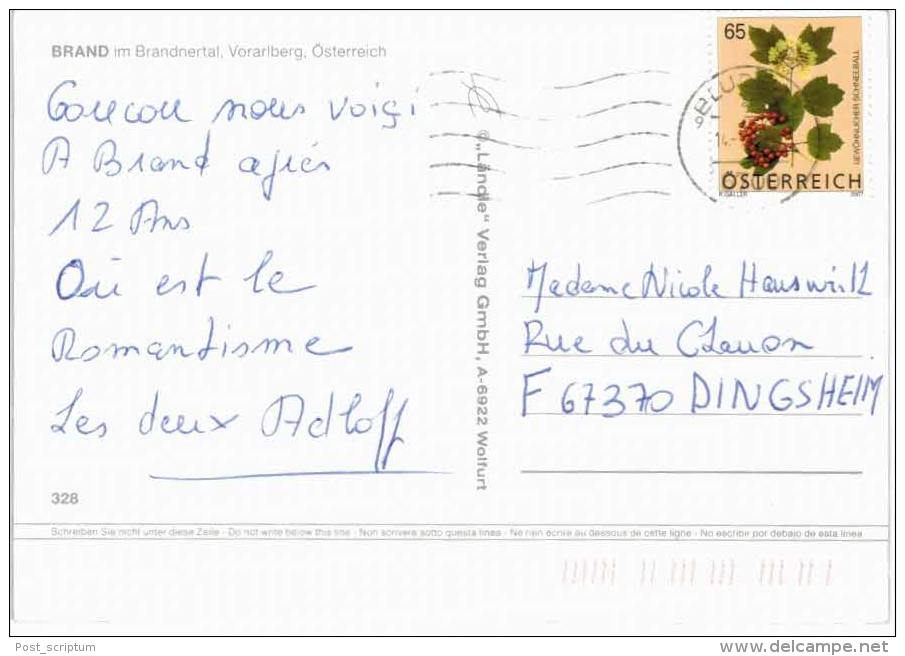 BRAND im Brandnertal, Vorarlberg, Österreich
Coucou nous voiçi
A Brand après
12 Ans
Où est le
Romantisme
Les deux Adloff
328
© „Ländle" Verlag GmbH, A-6922 Wolfurt
65
GEWÖHNLICHER SCHNEEBALL
ÖSTERREICH
BLU
Madame Nicole Hauswirth
Rue du Clauon
F 67370 DINGSHEIM
Schreiben Sie nicht unter diese Zeile - Do not write below this line - Non scrivere sotto questa linea - Ne rien écrire au dessous de cette ligne - No escribir por debajo de esta linea
Post_scriptum
www.delcampe.net